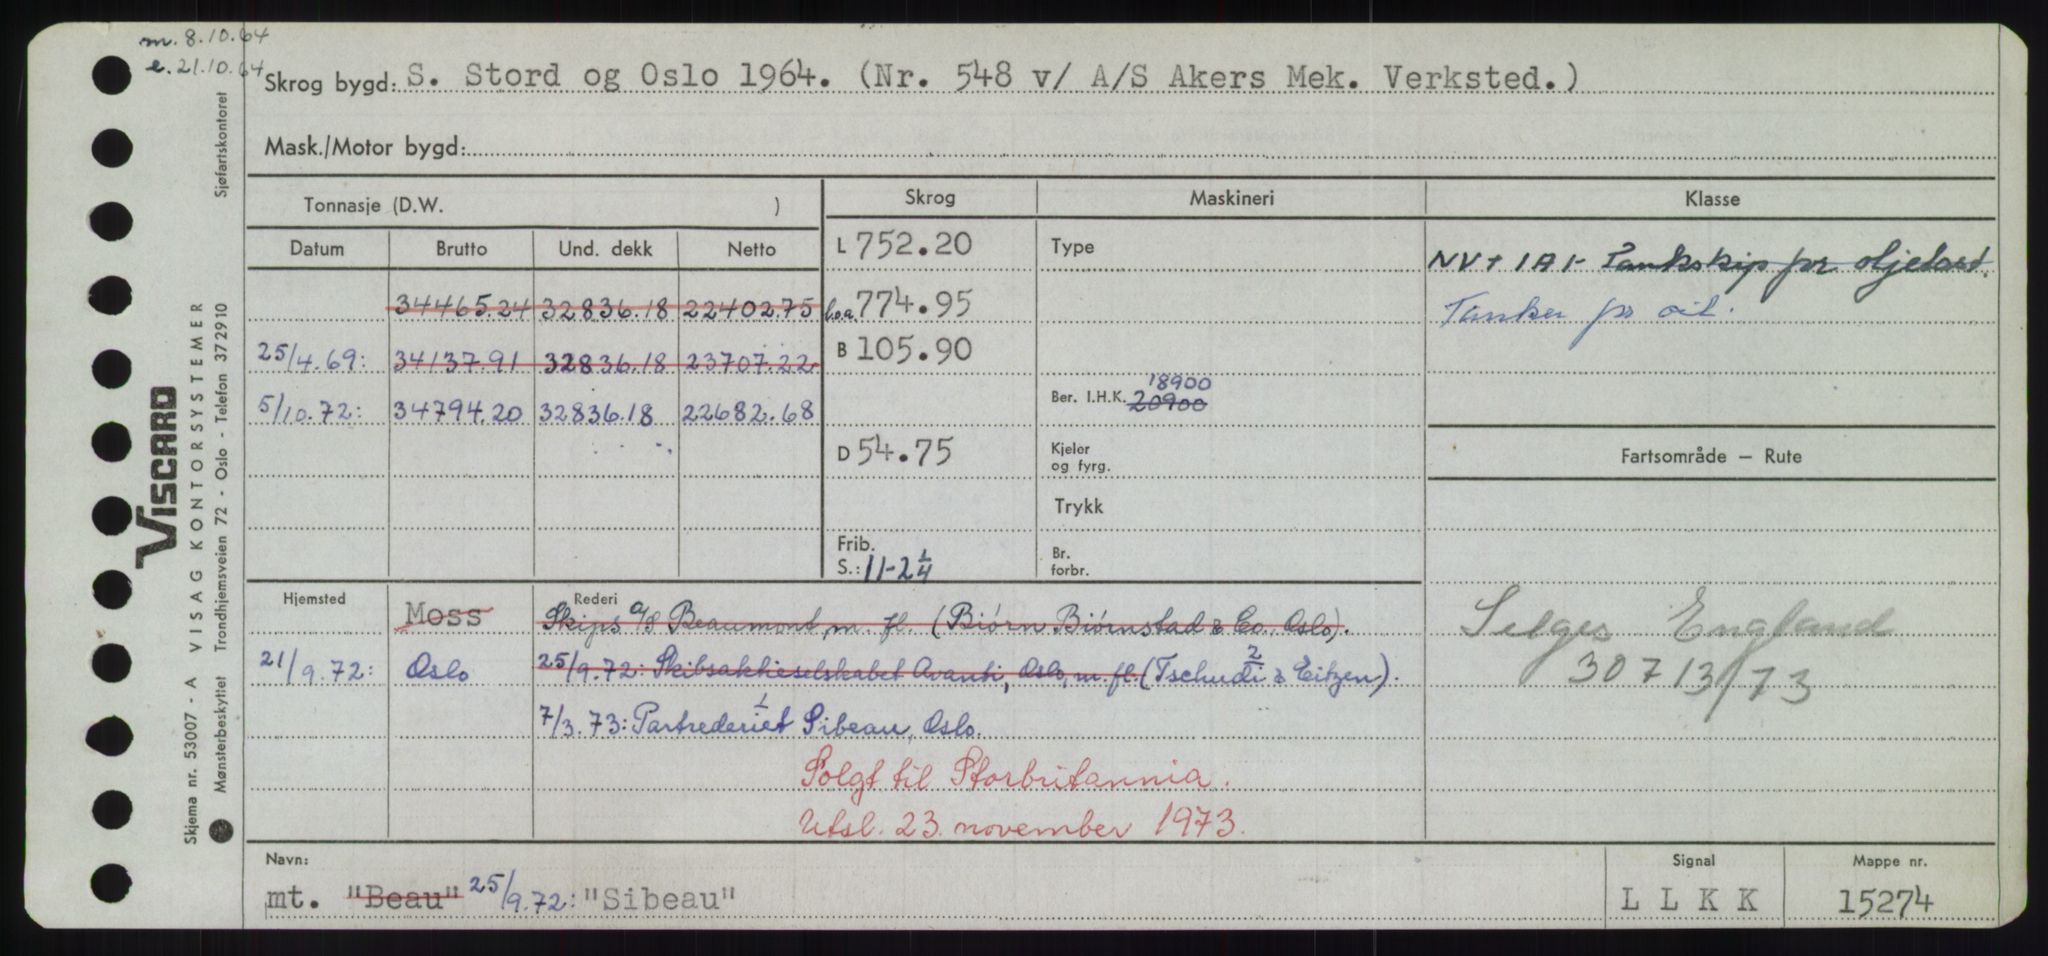 m. 8.10.64
e. 21.10.64
Skrog bygd: S. Stord og Oslo 1964. (Nr. 548 v/ A/S Akers Mek. Verksted.)
Mask./Motor bygd:
Tonnasje (D.W. )
Skrog Maskineri Klasse
Datum Brutto Und. dekk Netto
34465.24 32836.18 22402.75
25/4.69: 34137.91 32836.18 23707.22
5/10.72: 34794.20 32836.18 22682.68
L 752.20
l.o.a. 774.95
B 105.90
D 54.75
Frib.
S.: 11-2 1/4
Type
18900
Ber. I.H.K. 20900
Kjeler
og fyrg.
Trykk
Br.
forbr.
NV + 1A1 - Tankskip for oljelast.
Tanker for oil.
Fartsområde — Rute
Selges England
30713/73
Hjemsted Rederi
Moss Skips A/S Beaumont m. fl. (Biørn Biørnstad & Co., Oslo).
21/9.72: Oslo 25/9.72: Skibsaktieselskabet Avanti, Oslo, m. fl. (Tschudi & Eitzen). 2
7/3.73: Partrederiet Sibeau, Oslo. 1
Solgt til Storbritannia.
Utsl. 23. november 1973.
Navn: Signal Mappe nr.
mt. "Beau" 25/9.72: "Sibeau" LLKK 15274
Skjema nr. 53007 - A VISAG KONTORSYSTEMER Sjøfartskontoret
Mønsterbeskyttet Trondhjemsveien 72 - Oslo - Telefon 372910
VISCARD